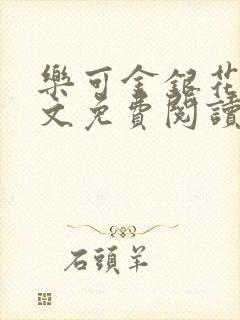 樂可金銀花
文免費閱讀
石頭羊